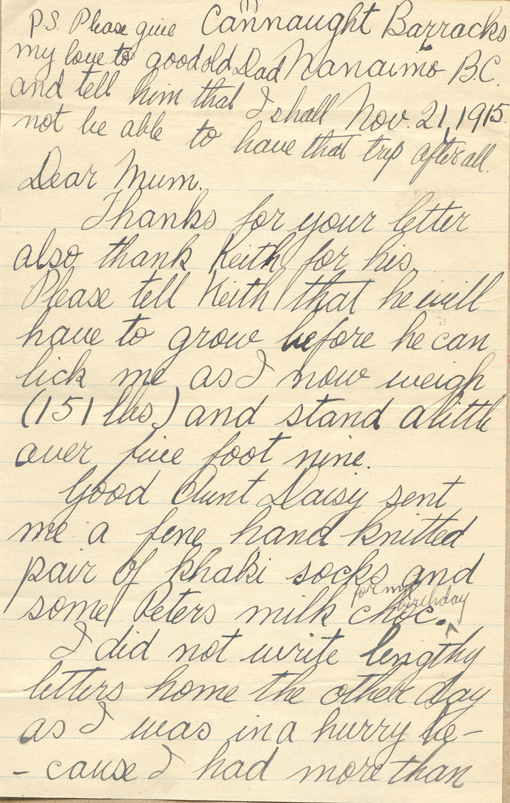 P.S. Please give
my love to good old Dad
and tell him that I shall
not be able to have that trip after all.
Cannaught Barracks
Nanaimo B.C.
Nov. 21, 1915.
Dear Mum,
Thanks for your letter
also thank Keith for his.
Please tell Keith that he will
have to grow before he can
lick me as I now weigh
(151 lbs.) and stand a little
over five foot nine.
Good Aunt Daisy sent
me a fine hand knitted
pair of khaki socks and
for my
birthday
some Peters milk choc.
I did not write lengthy
letters home the other day
as I was in a hurry be-
- cause I had more than